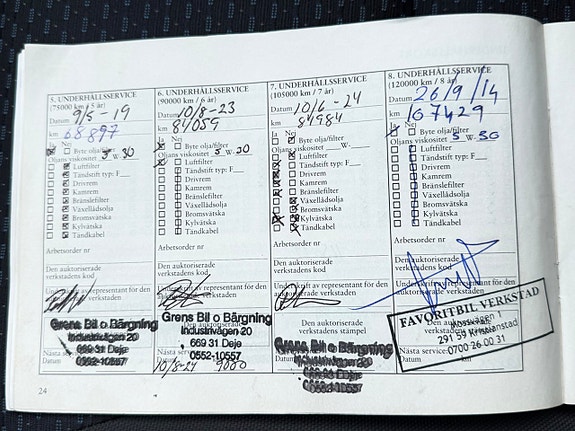 5. UNDERHÅLLSSERVICE
(75000 km / 5 år)
Datum 9/5-19
km 68897
Ja Nej
Byte olja/filter
Oljans viskositet 5 W- 30
Luftfilter
Tändstift typ: F
Drivrem
Kamrem
Bränslefilter
Växellådsolja
Bromsvätska
Kylvätska
Tändkabel
Arbetsorder nr
Den auktoriserade
verkstadens kod
representant för den
verkstaden
Grens Bil o Bärgning
Industrivägen 20
669 31 Deje
0552-10557
6. UNDERHÅLLSSERVICE
(90000 km / 6 år)
Datum 10/8-23
km 84059
Ja Nej
Byte olja/filter
Oljans viskositet 5 W- 30
Luftfilter
Tändstift typ: F
Drivrem
Kamrem
Bränslefilter
Växellådsolja
Bromsvätska
Kylvätska
Tändkabel
Arbetsorder nr
Den auktoriserade
verkstadens kod
representant för den
verkstaden
Grens Bil o Bärgning
Industrivägen 20
669 31 Deje
0552-10557
10/8-24 9000
7. UNDERHÅLLSSERVICE
(105000 km / 7 år)
Datum 10/6-24
km 84984
Ja Nej
Byte olja/filter
Oljans viskositet W-
Luftfilter
Tändstift typ: F
Drivrem
Kamrem
Bränslefilter
Växellådsolja
Bromsvätska
Kylvätska
Tändkabel
Arbetsorder nr
Den auktoriserade
verkstadens kod
Underskrift av representant för den
verkstaden
Den auktoriserade
verkstadens stämpel
Grens Bil o Bärgning
Industrivägen 20
669 31 Deje
0552-10557
8. UNDERHÅLLSSERVICE
(120000 km / 8 år)
Datum 26/9/14
km 107429
Ja Nej
Byte olja/filter
Oljans viskositet 5 W- 30
Luftfilter
Tändstift typ: F
Drivrem
Kamrem
Bränslefilter
Växellådsolja
Bromsvätska
Kylvätska
Tändkabel
Arbetsorder nr
Den auktoriserade
verkstadens kod
representant för den
auktoriserade verkstaden
FAVORITBIL VERKSTAD
291 59 Kristianstad
0700 26 00 31
Nästa service:
Datum km
24